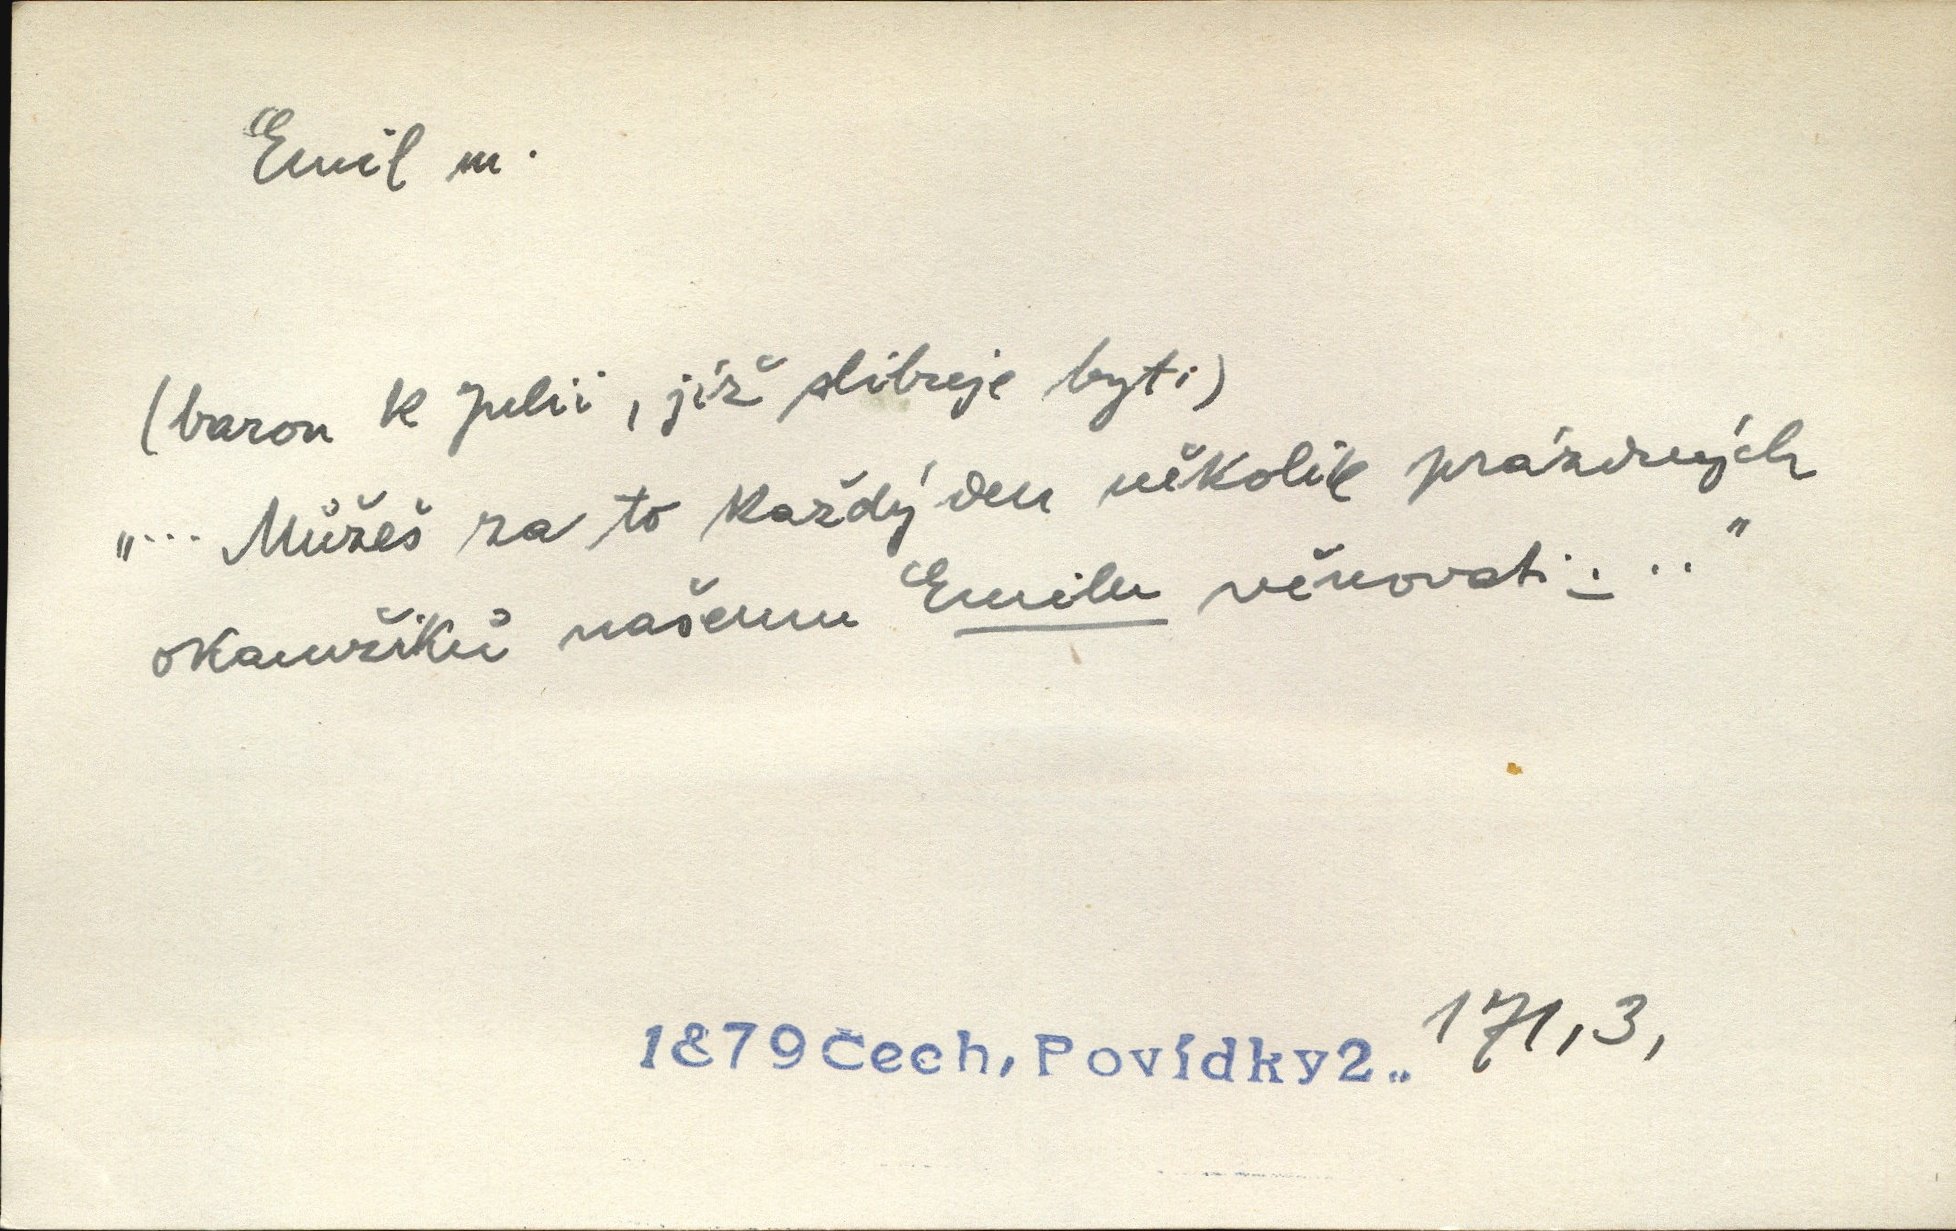 Emil m.
(baron k Julii, jíž slibuje byt:)
„... Můžeš za to každý den několik prázdných
okamžiků našemu Emilu věnovati: .."
1879 Čech, Povídky 2.. 171,3,